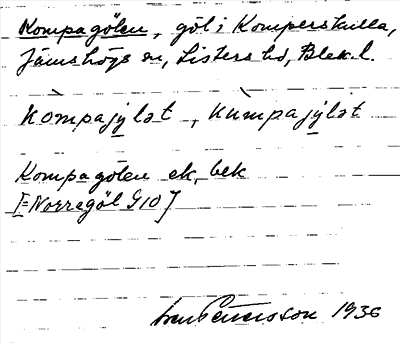 Kompagölen, göl i Komperskulla,
Jämshögs sn, Listers hd, Blek. l.
Kòmpajỵlǝt, Kùmpajỵlǝt
Kompagölen ek, bek
[=Norregöl G10]
Pettersson 1936